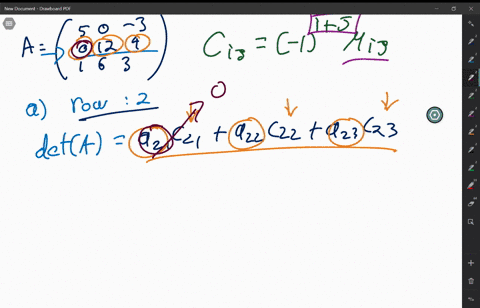 New Document - Drawboard PDF
A = ( 5 0 -3
0 12 4
1 6 3 )
C_ij = (-1)^(i+j) M_ij
a) row : 2
0
det(A) = a21 C21 + a22 C22 + a23 C23